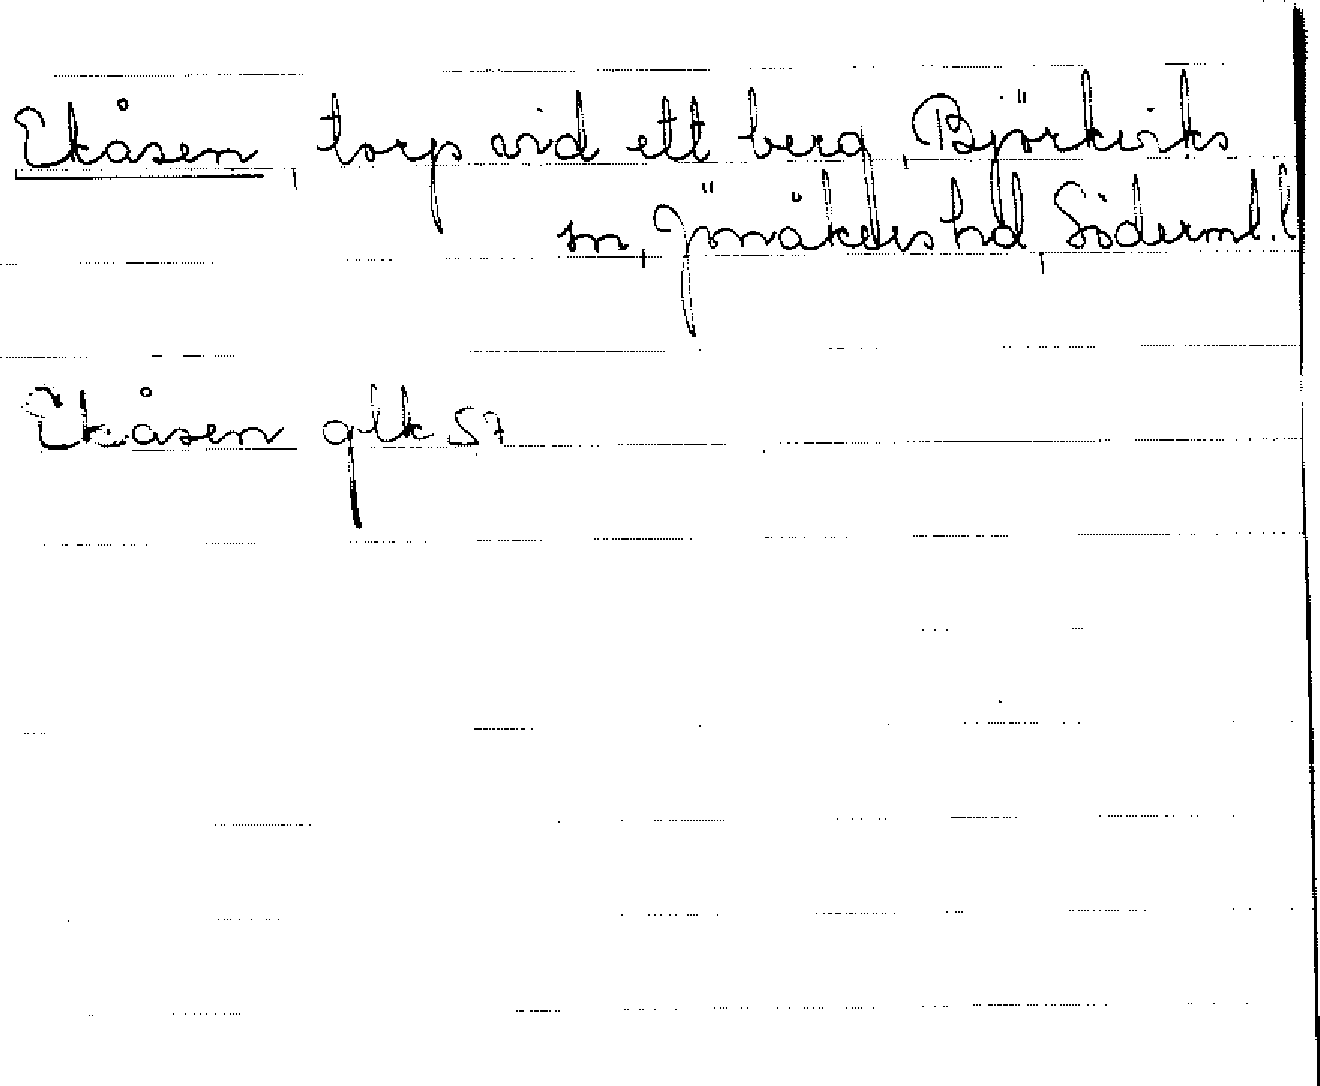 Ekåsen, torp vid ett berg, Björkviks
sn, Jönåkers hd, Söderml. l
Ekåsen glk 57